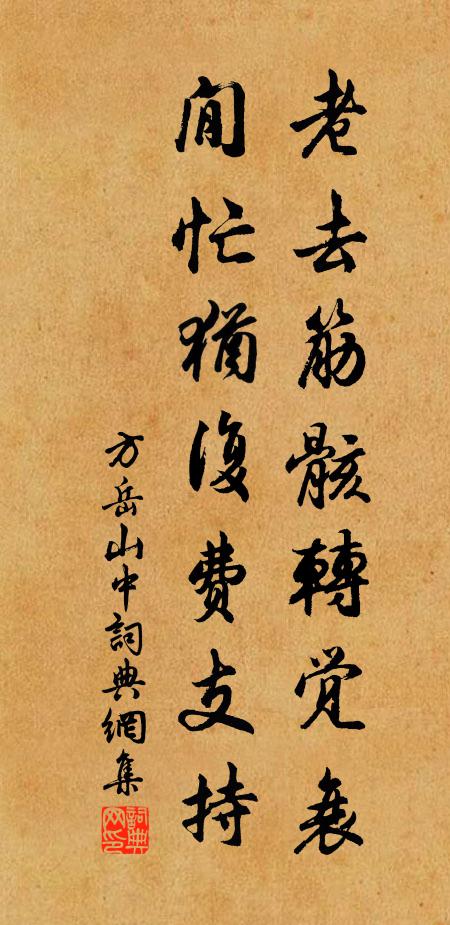 老去筋骸轉覺衰
閒忙猶復費支持
方岳山中詞典網集
詞典网印